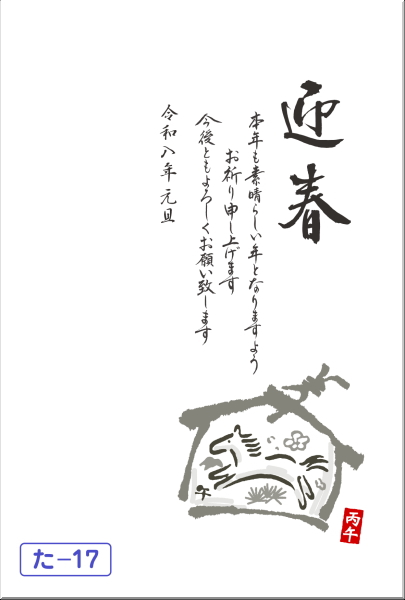 迎春
本年も素晴らしい年となりますよう
お祈り申し上げます
今後ともよろしくお願い致します
令和八年 元旦
午
丙午
た-17